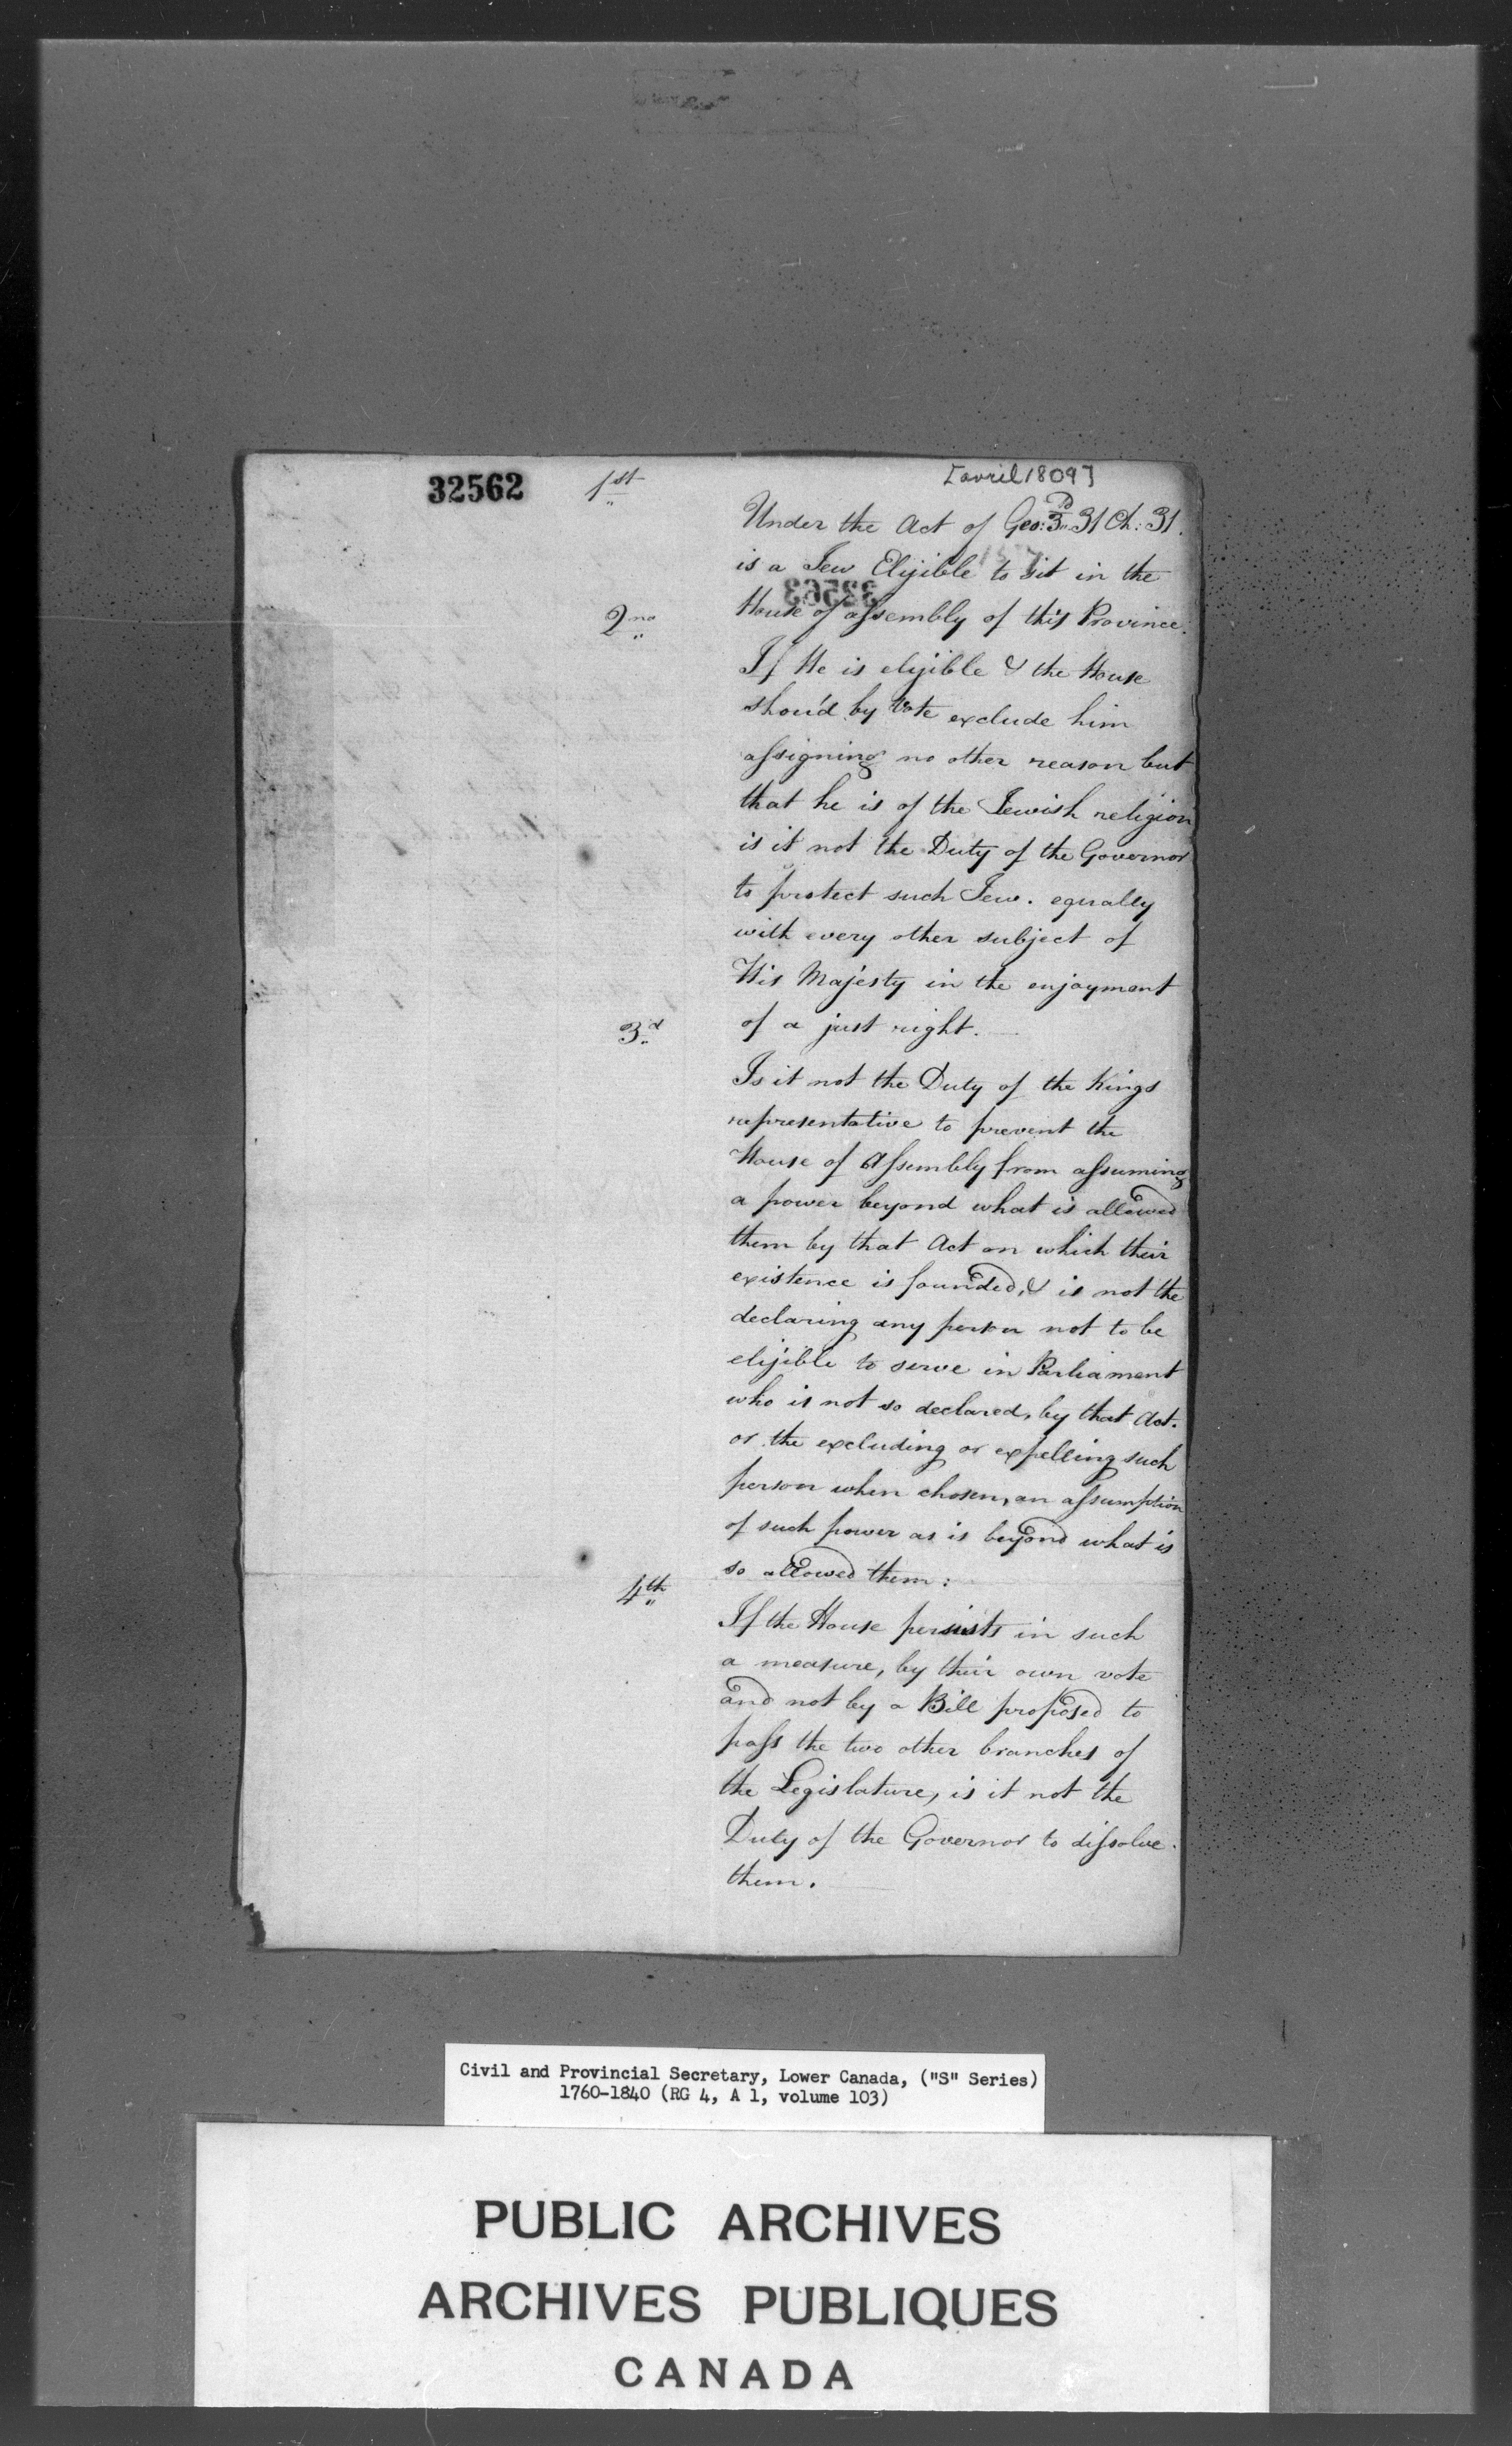 32562
[avril 1809]
1st
Under the Act of Geo: 3d 31 Ch: 31.
is a Jew Elijible to sit in the
House of assembly of this Province.
2nd
If He is elijible & the House
shou'd by Vote exclude him
assigning no other reason but
that he is of the Jewish religion
is it not the Duty of the Governor
to protect such Jew. equally
with every other subject of
His Majesty in the enjoyment
of a just right.
3d
Is it not the Duty of the Kings
representative to prevent the
House of Assembly from assuming
a power beyond what is allowed
them by that Act on which their
existence is founded, & is not the
declaring any person not to be
elijible to serve in Parliament
who is not so declared, by that Act.
or the excluding or expelling such
person when chosen, an assumption
of such power as is beyond what is
so allowed them:
4th
If the House persists in such
a measure, by their own vote
and not by a Bill proposed to
pass the two other branches of
the Legislature, is it not the
Duty of the Governor to dissolve
them.
Civil and Provincial Secretary, Lower Canada, ("S" Series)
1760-1840 (RG 4, A 1, volume 103)
PUBLIC ARCHIVES
ARCHIVES PUBLIQUES
CANADA